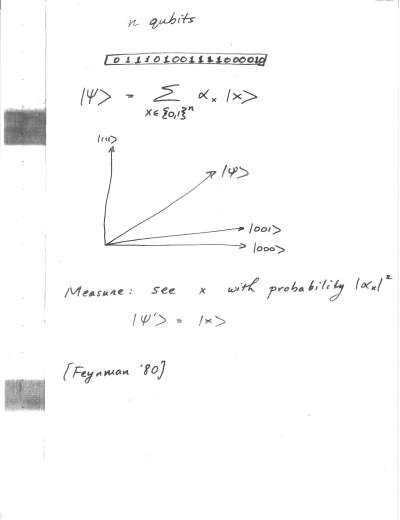 n qubits
011101001111000010
|Ψ> = Σ αₓ |x>
x∈{0,1}ⁿ
|111>
|Ψ>
|001>
|000>
Measure: see x with probability |αₓ|²
|Ψ'> = |x>
[Feynman '80]